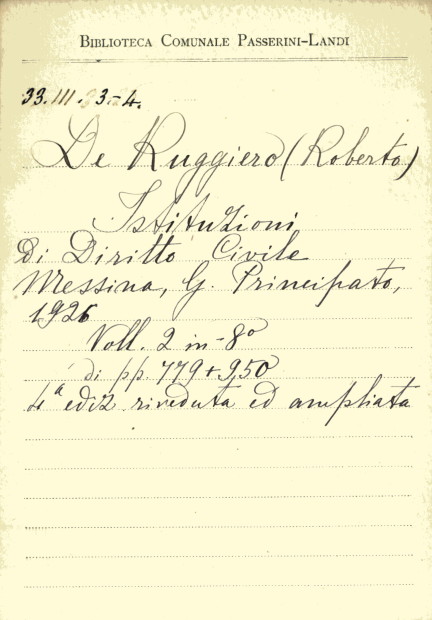 BIBLIOTECA COMUNALE PASSERINI-LANDI
33.III.33-4.
De Ruggiero (Roberto)
Istituzioni
di Diritto Civile
Messina, G. Principato,
1926
Voll. 2 in-8º
di pp. 779+950
4ª ediz riveduta ed ampliata